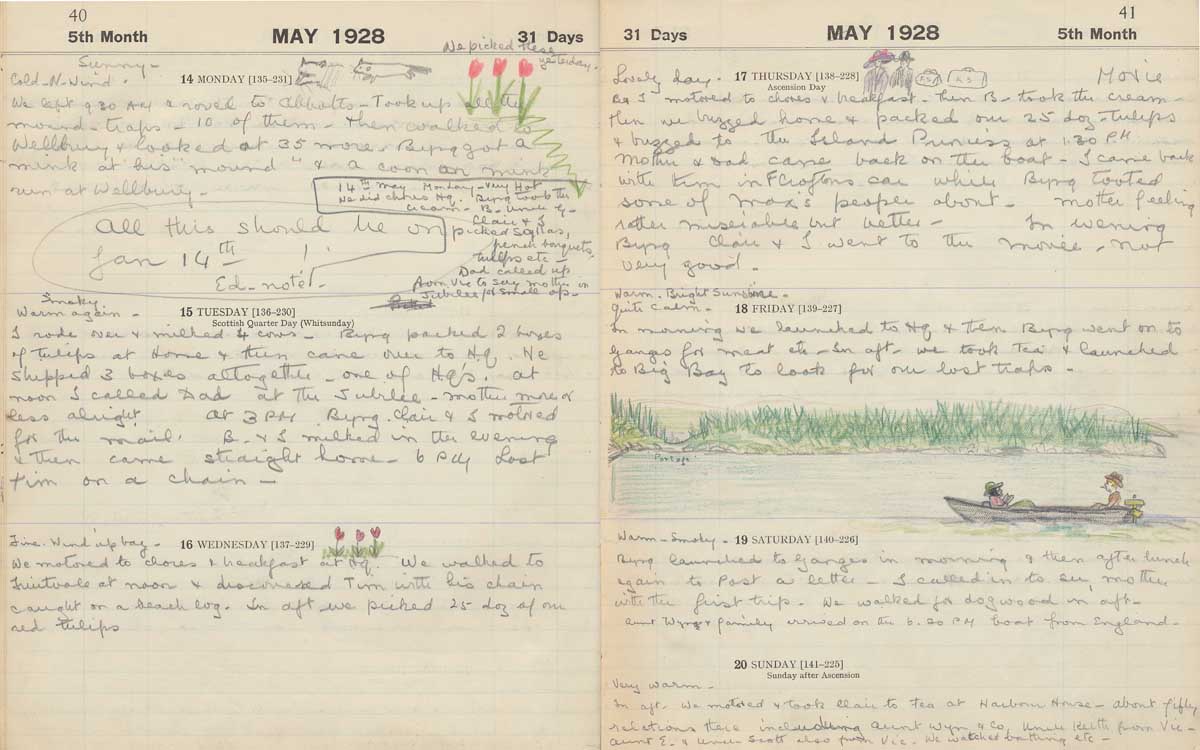 40
5th Month MAY 1928 31 Days
We picked these
yesterday.
Sunny -
Cold - N - Wind.
14 MONDAY [135-231]
We left 9.30 AM & rowed to Abbotts - Took up all the
mound-traps - 10 of them - & then walked to
Wellbury & looked at 35 more. Byng got a
mink at his "mound" & a coon on mink
run at Wellbury -
14th May Monday - Very Hot
We did chores HQ. Byng took the
cream - B. Uncle G -
Clair & I
picked
tulips etc -
Dad called up
from Vic to say mother in
Jubilee for small op -
All this should be on
Jan 14th !
Ed - note.
Smoky
Warm again -
15 TUESDAY [136-230]
Scottish Quarter Day (Whitsunday)
I rode over & milked 4 cows - Byng packed 2 boxes
of tulips at Home & then came over to HQ. He
shipped 3 boxes altogether - one of HQ's. At
noon I called Dad at the Jubilee - mother more or
less alright. At 3 PM Byng, Clair & I motored
for the mail. B. & I milked in the evening
& then came straight home - 6 PM Lost
Tim on a chain -
Fine. Wind up bay -
16 WEDNESDAY [137-229]
We motored to chores & breakfast at HQ. We walked to
Fruitvale at noon & discovered Tim with his chain
caught on a beach log. In aft we picked 25 doz of our
red tulips
41
31 Days MAY 1928 5th Month
Lovely day.
17 THURSDAY [138-228]
Ascension Day
Movie
B & I motored to chores & breakfast - then B - took the cream -
then we buzzed home & packed our 25 doz - tulips
& buzzed to the Island Princess at 1.30 PM
Mother & Dad came back on the boat - I came back
with them in F Croftons car while Byng tooted
some of Max's people about - mother feeling
rather miserable but better - In evening
Byng Clair & I went to the movie - not
very good.
Warm. Bright Sunshine -
Quite Calm -
18 FRIDAY [139-227]
In morning we launched to HQ & then Byng went on to
Ganges for meat etc - In aft - we took Tea & launched
to Big Bay to look for our lost traps -
Portage
Warm - Smoky -
19 SATURDAY [140-226]
Byng launched to Ganges in morning & then after lunch
again to Post a letter - I called in to see mother
with the first trip. We walked for dogwood in aft -
Aunt Wyn & family arrived on the 6.30 PM boat from England -
20 SUNDAY [141-225]
Sunday after Ascension
Very warm -
In aft - We motored & took Clair to Tea at Harbour House - about fifty
relations there including Aunt Wyn & Co, Uncle Keith from Vic -
Aunt E. & Uncle Scott also from Vic. We watched bathing etc -